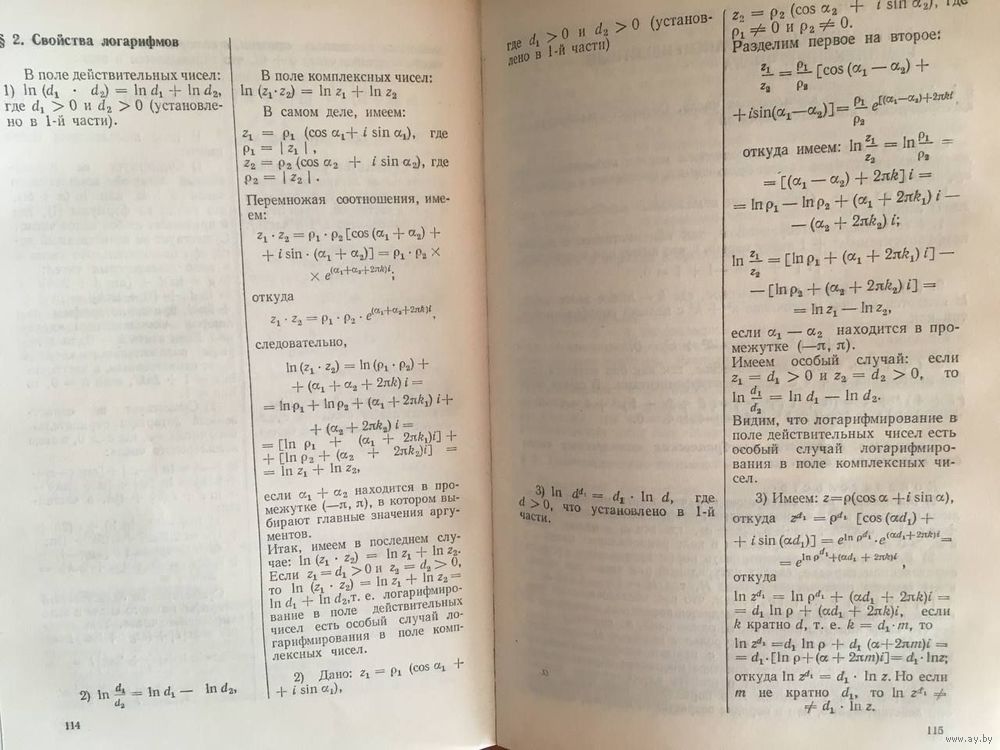 § 2. Свойства логарифмов
В поле действительных чисел:
1) ln (d₁ · d₂) = ln d₁ + ln d₂,
где d₁ > 0 и d₂ > 0 (установле-
но в 1-й части).
2) ln d₁/d₂ = ln d₁ — ln d₂,
114
В поле комплексных чисел:
ln (z₁·z₂) = ln z₁ + ln z₂
В самом деле, имеем:
z₁ = ρ₁ (cos α₁+ i sin α₁), где
ρ₁ = | z₁ | ,
z₂ = ρ₂ (cos α₂ + i sin α₂), где
ρ₂ = | z₂ | .
Перемножая соотношения, име-
ем:
z₁ · z₂ = ρ₁ · ρ₂ [cos (α₁ + α₂) +
+ i sin · (α₁ + α₂)] = ρ₁ · ρ₂ ×
× e^(α₁+α₂+2πk)i;
откуда
z₁ · z₂ = ρ₁ · ρ₂ · e^(α₁+α₂+2πk)i,
следовательно,
ln (z₁ · z₂) = ln (ρ₁ · ρ₂) +
+ (α₁ + α₂ + 2πk) i =
= lnρ₁ + lnρ₂ + (α₁ +2πk₁) i+
+ (α₂ + 2πk₂) i =
= [ln ρ₁ + (α₁ + 2πk₁)i] +
+ [ln ρ₂ + (α₂ + 2πk₂)i] =
= ln z₁ + ln z₂,
если α₁ + α₂ находится в про-
межутке (—π, π), в котором вы-
бирают главные значения аргу-
ментов.
Итак, имеем в последнем слу-
чае: ln (z₁ · z₂) = ln z₁ + ln z₂.
Если z₁ = d₁ > 0 и z₂ = d₂ > 0,
то ln (z₁ · z₂) = ln z₁ + ln z₂ =
ln d₁ + ln d₂,т. е. логарифмиро-
вание в поле действительных
чисел есть особый случай ло-
гарифмирования в поле комп-
лексных чисел.
2) Дано: z₁ = ρ₁ (cos α₁ +
+ i sin α₁),
где d₁ > 0 и d₂ > 0 (установ-
лено в 1-й части)
3) ln d^d₁ = d₁ · ln d, где
d > 0, что установлено в 1-й
части.
z₂ = ρ₂ (cos α₂ + i sin α₂), где
ρ₁ ≠ 0 и ρ₂ ≠ 0.
Разделим первое на второе:
z₁/z₂ = ρ₁/ρ₂ [cos (α₁ — α₂) +
+ isin(α₁—α₂)]= ρ₁/ρ₂ e^[(α₁—α₂)+2πki,
откуда имеем: ln z₁/z₂ = ln ρ₁/ρ₂ =
= [(α₁ — α₂) + 2πk] i =
= lnρ₁ — lnρ₂ + (α₁ + 2πk₁) i —
— (α₂ + 2πk₂) i;
ln z₁/z₂ = [lnρ₁ + (α₁ + 2πk₁) i] —
— [ln ρ₂ + (α₂ + 2πk₂) i] =
= ln z₁ — ln z₂,
если α₁ — α₂ находится в про-
межутке (—π, π).
Имеем особый случай: если
z₁ = d₁ > 0 и z₂ = d₂ > 0, то
ln d₁/d₂ = ln d₁ — ln d₂.
Видим, что логарифмирование в
поле действительных чисел есть
особый случай логарифмиро-
вания в поле комплексных чи-
сел.
3) Имеем: z=ρ(cos α +i sin α),
откуда z^d₁ = ρ^d₁ [cos (αd₁) +
+ i sin (αd₁)] = e^ln ρ^d₁ · e^(αd₁+2πk)i =
= e^ln ρ^d₁+(αd₁ + 2πk)i ,
откуда
ln z^d₁ = ln ρ^d₁ + (αd₁ + 2πk)i =
= d₁ ln ρ + (αd₁ + 2πk)i, если
k кратно d, т. е. k = d₁·m, то
ln z^d₁ =d₁ ln ρ + d₁ (α+2πm)i =
= d₁·[ln ρ+(α + 2πm)i]= d₁·lnz;
откуда ln z^d₁ = d₁ · ln z. Но если
m не кратно d₁, то ln z^d₁ ≠
≠ d₁ · ln z.
115
www.ay.by